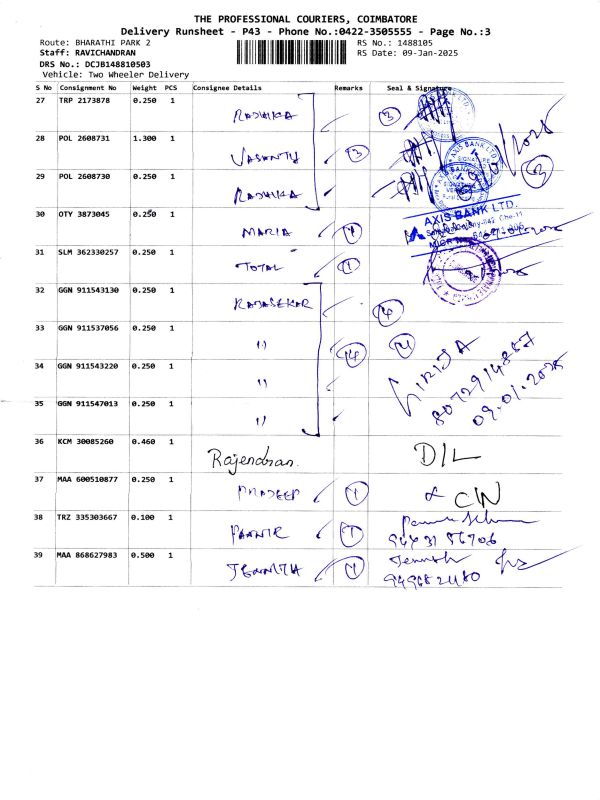 THE PROFESSIONAL COURIERS, COIMBATORE
Delivery Runsheet - P43 - Phone No.:0422-3505555 - Page No.:3
Route: BHARATHI PARK 2 RS No.: 1488105
Staff: RAVICHANDRAN RS Date: 09-Jan-2025
DRS No.: DCJB148810503
Vehicle: Two Wheeler Delivery
S No Consignment No Weight PCS Consignee Details Remarks Seal & Signature
27 TRP 2173878 0.250 1 RADHIKA 3
28 POL 2608731 1.300 1 VASANTH 3
29 POL 2608730 0.250 1 RADHIKA 3
AXIS BANK LTD.
30 OTY 3873045 0.250 1 MARIA 1
31 SLM 362330257 0.250 1 TOTAL 1
32 GGN 911543130 0.250 1 RAJASEKAR 14
33 GGN 911537056 0.250 1 11 14 14 GIRIJA
34 GGN 911543220 0.250 1 11 8072914857
35 GGN 911547013 0.250 1 11 09.01.2025
36 KCM 30085260 0.460 1 Rajendran. D/L
37 MAA 600510877 0.250 1 PRADEEP 1 C/N
38 TRZ 335303667 0.100 1 1
94431 86706
39 MAA 868627983 0.500 1 1